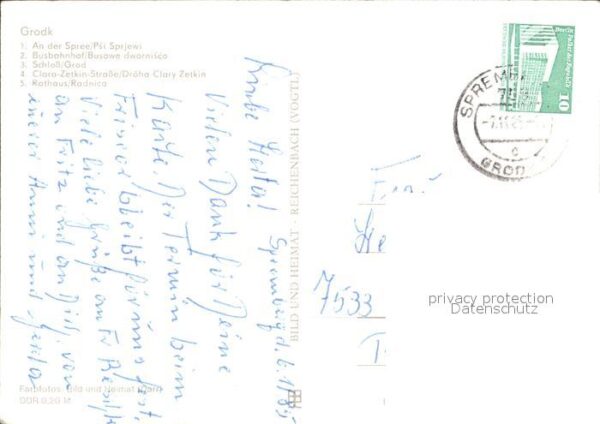 Grodk
1. An der Spree/Pśi Sprjewi
2. Busbahnhof/Busowe dwornišćo
3. Schloß/Grod
4. Clara-Zetkin-Straße/Droha Clary Zetkin
5. Rathaus/Radnica
Spremberg, d. 6. 11. 85
Vielen Dank für Deine
Karte. Der Termin beim
Frisier bleibt für uns fest.
Viele liebe Grüße an
an Fritz und an Dich, von
Anni und
Farbfotos: Bild und Heimat
DDR 0,20 M
BILD UND HEIMAT · REICHENBACH (VOGTL)
10
SPREMB
GROD
c
Frau
He
7533
privacy protection
Datenschutz